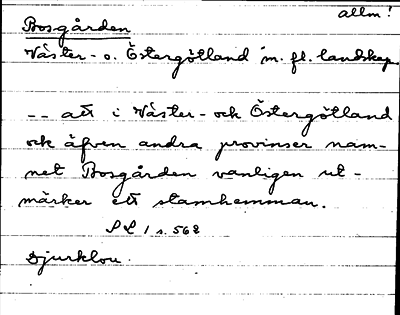 allm!
Bosgården
Väster- o. Östergötland m. fl. landskap
-- att i Väster- och Östergötland
och äfven andra provinser nam-
net Bosgården vanligen ut-
märker ett stamhemman.
SL 1 s. 562
Djurklou.